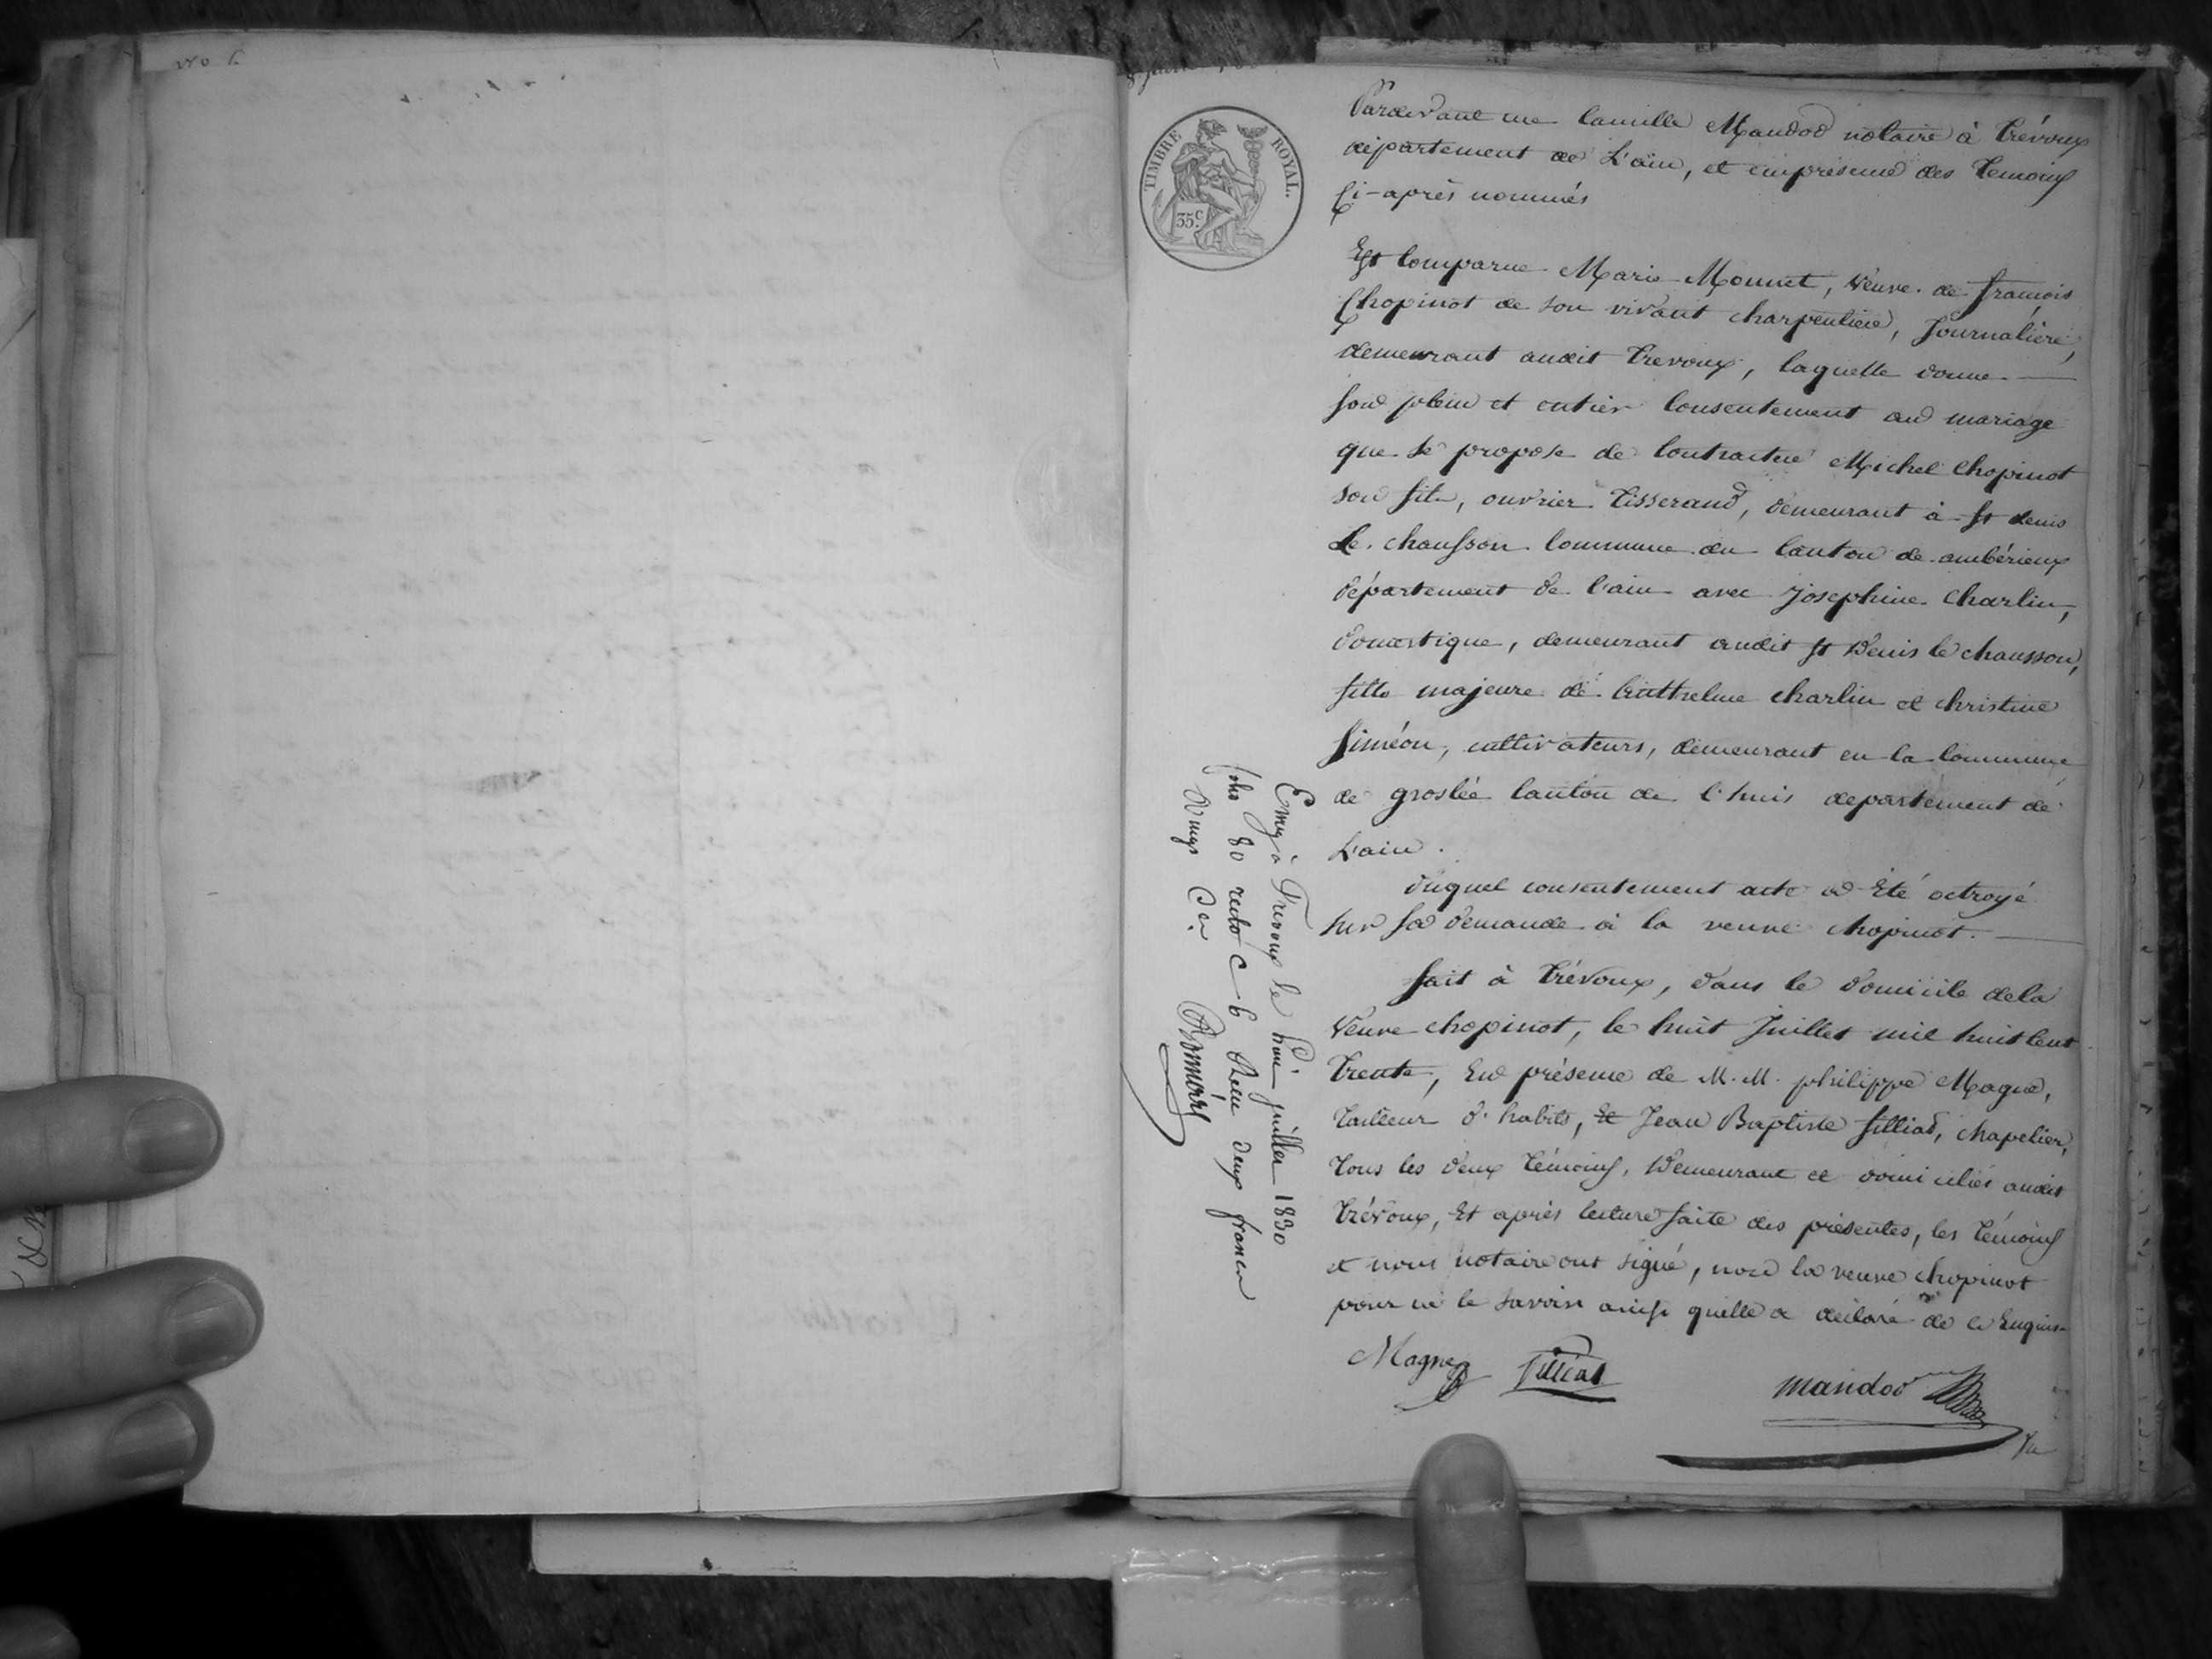 No 6
TIMBRE ROYAL.
35 c.
Pardevant me Camille Mandod notaire à Trévoux
département de L'ain, et en présence des Temoins
Ci-après nommés
Est Comparue Marie Monnet, Veuve de françois
Chopinot de son vivant charpentier, Journalière,
demeurant audit Trevoux, laquelle donne
son plein et entier Consentement au mariage
que se propose de Contracter Michel Chopinot
son fils, ouvrier Tisserand, demeurant à St denis
Le chausson Commune du Canton de ambérieux
département de l'ain avec Josephine Charlin,
domestique, demeurant audit St Denis le chausson,
fille majeure de Anthelme charlin et christine
Siméon, cultivateurs, demeurant en la Commune
de groslée Canton de l'huis departement de
L'ain.
duquel consentement acte a Eté octroyé
sur sa demande à la veuve chopinot.
fait à Trévoux, dans le domicile de la
Veuve chopinot, le huit Juillet mil huit Cent
Trente, En présence de M. M. philippe Magne,
Tailleur d'habits, Et Jean Baptiste filliat, chapelier,
Tous les deux Témoins, Demeurant et domiciliés audit
Trévoux, Et après lecture faite des présentes, les Témoins
et nous notaire ont signé, non la veuve chopinot
pour ne le savoir ainsi quelle a déclaré de ce Enquise
Magne filliat mandod
Enreg à Trevoux le huit juillet 1830
folio 80 recto C 6 Reçu deux francs
vingt C.es